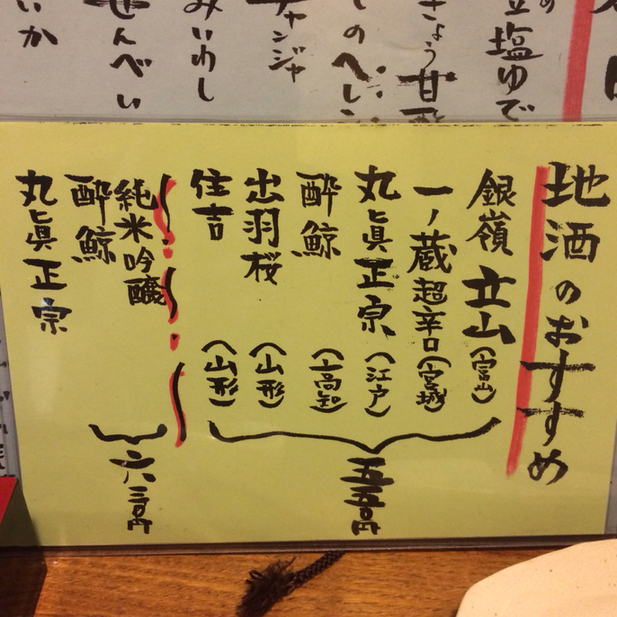 立塩ゆで
チャンジャ
みいわし
せんべい
いか
地酒のおすすめ
銀嶺立山(富山)
一ノ蔵超辛口(宮城)
丸眞正宗(江戸)
酔鯨(高知)
出羽桜(山形)
住吉(山形)
五五〇円
純米吟醸
酔鯨
丸眞正宗
六三〇円